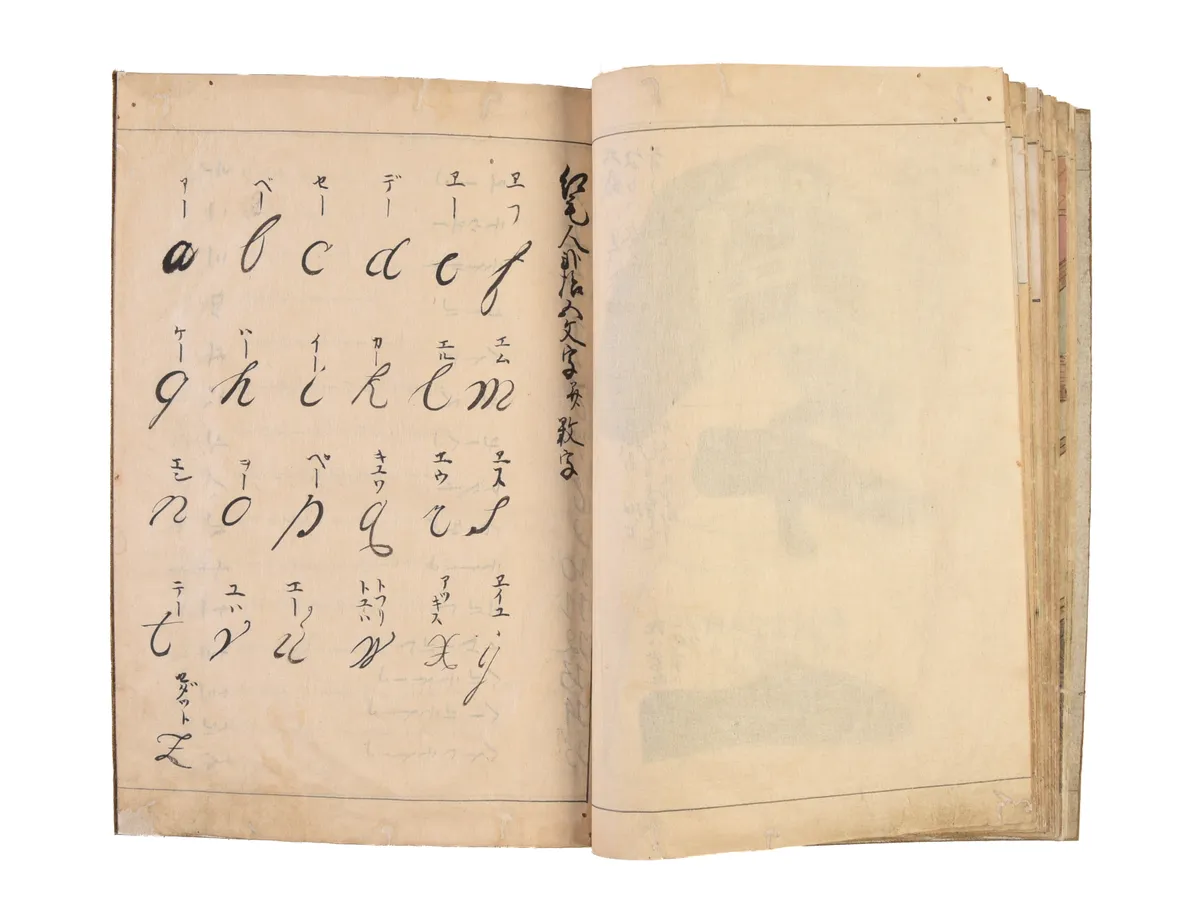 紅毛人弐拾五文字并数字
アー ベー セー デー ヱー ヱフ
a b c d e f
ケー ハー イー カー エル エム
g h i k l m
エン ヲー ペー キユウ エウ ヱス
n o p q r s
テー ユハ エー トフリトユハ アツキス ヱイユ
t v u w x y
セダツト
z